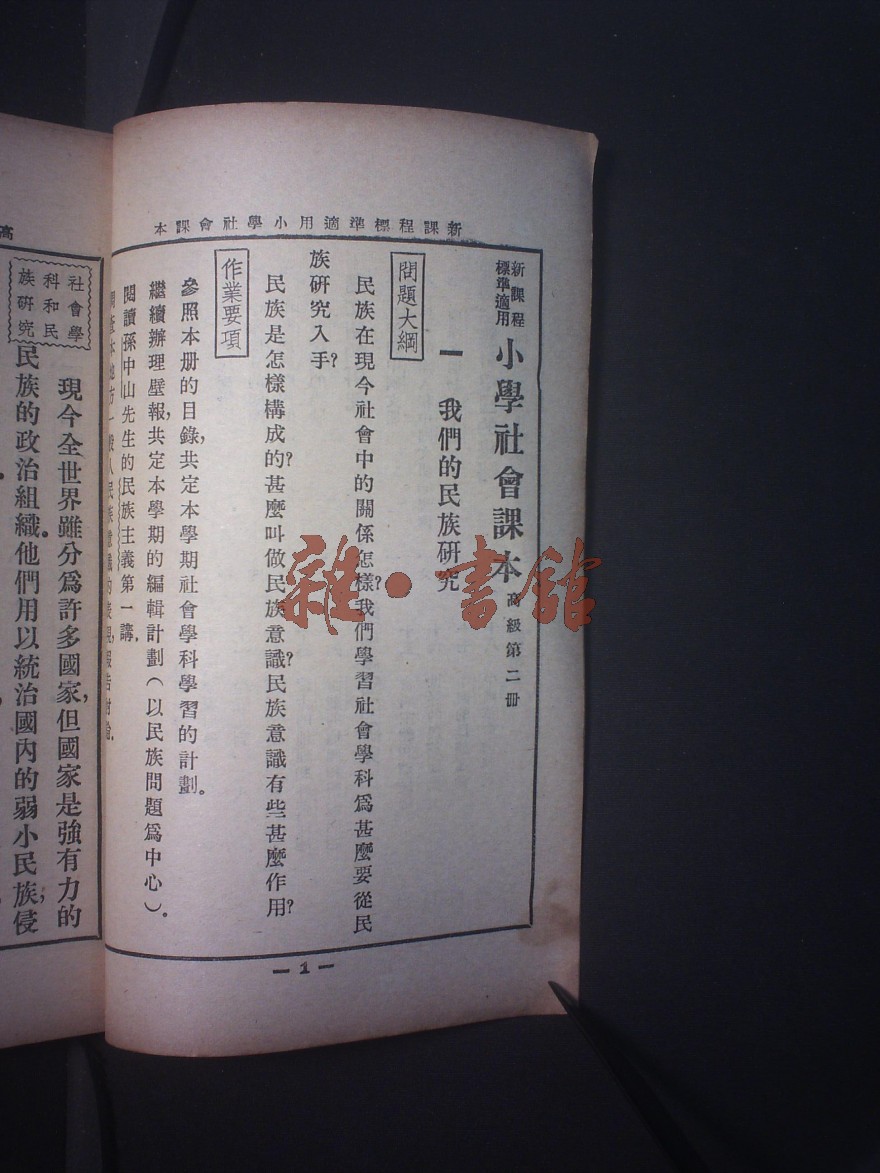 新課程標準適用小學社會課本
新課程標準適用
小學社會課本 高級第二冊
一 我們的民族研究
問題大綱
民族在現今社會中的關係怎樣?我們學習社會學科爲甚麼要從民
族研究入手?
民族是怎樣構成的?甚麼叫做民族意識?民族意識有些甚麼作用?
作業要項
參照本册的目錄,共定本學期社會學科學習的計劃。
繼續辦理壁報,共定本學期的編輯計劃(以民族問題爲中心)。
閱讀孫中山先生的民族主義第一講。
調查本地方一般人民族意識的表現,報告討論。
— 1 —
高
社會學
科和民
族研究
現今全世界雖分爲許多國家,但國家是強有力的
民族的政治組織。他們用以統治國內的弱小民族,侵
雜·書館